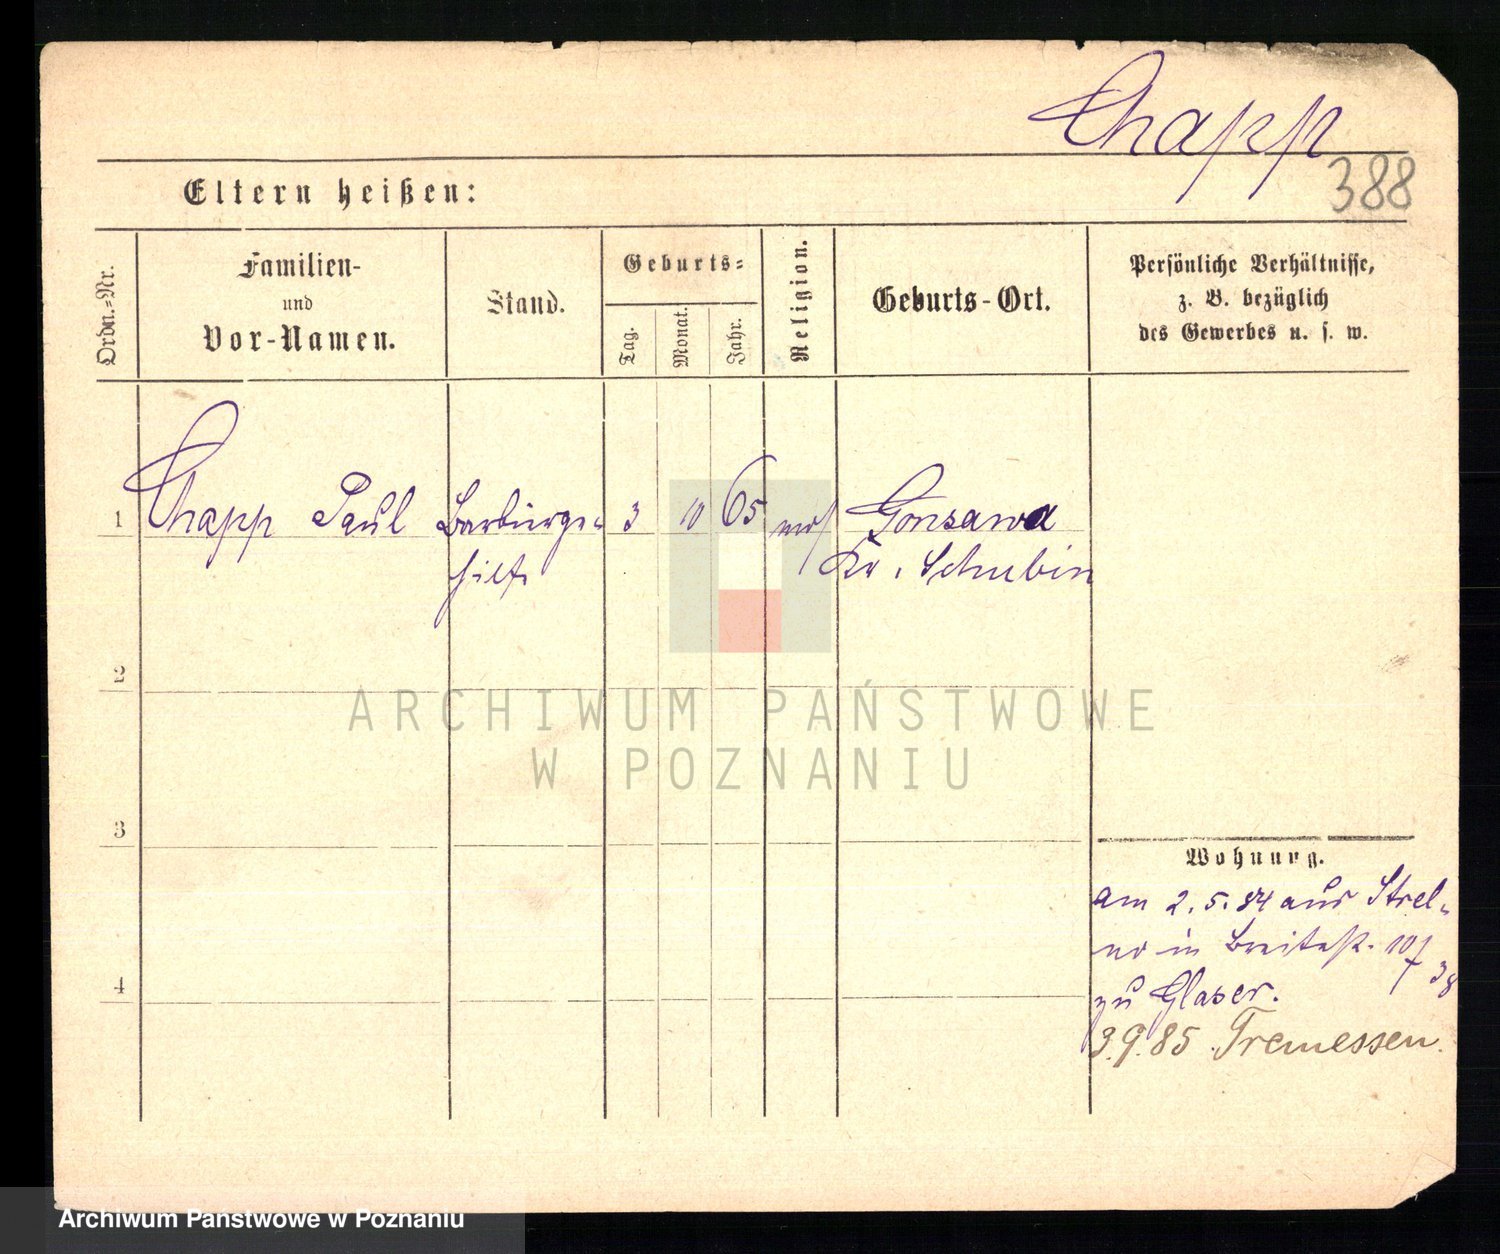 Chapp
388
Eltern heißen:
Ordn.-Nr.
Familien-
und
Vor-Namen.
Stand.
Geburts-
Tag.
Monat.
Jahr.
Religion.
Geburts-Ort.
Persönliche Verhältnisse,
z. B. bezüglich
des Gewerbes u. s. w.
1 Chapp Paul 3 10 65 Gonsawa
Kr. Schubin
2
3
4
Wohnung.
am 2.5.84 aus Strel-
no in Breitestr. 10
zu Glaser.
3.9.85. Tremessen.
ARCHIWUM PAŃSTWOWE
W POZNANIU
Archiwum Państwowe w Poznaniu